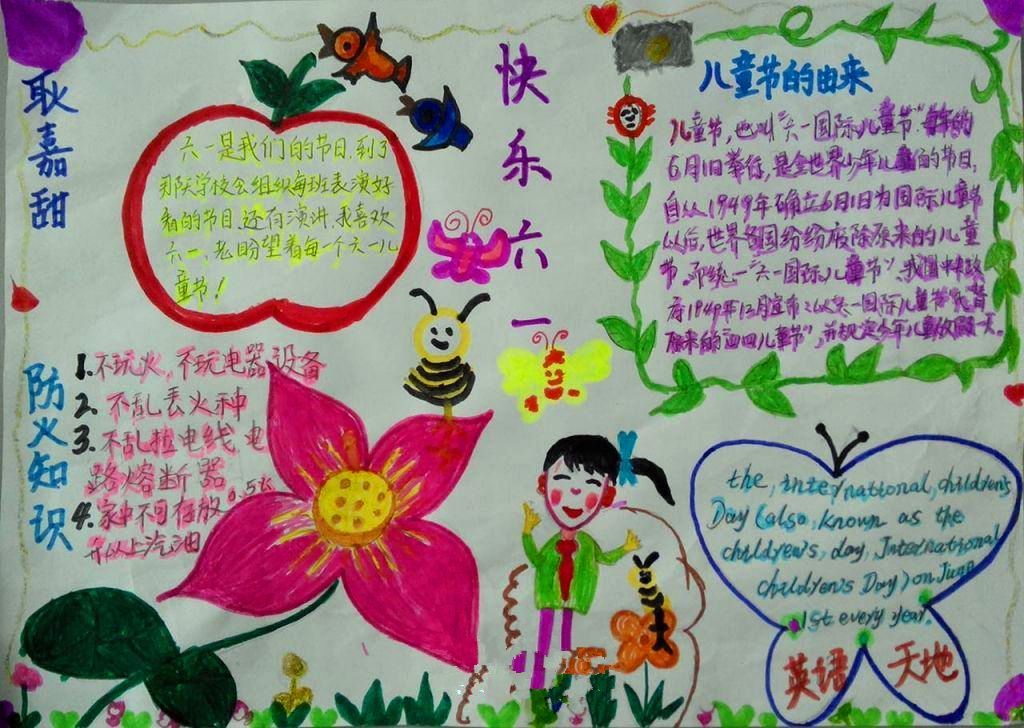 耿嘉甜
快乐六一
六一是我们的节日,到了
那天学校会组织每班表演好
看的节目,还有演讲,我喜欢
六一,老盼望着每一个六一儿
童节!
儿童节的由来
儿童节,也叫“六一国际儿童节”每年的
6月1日举行,是全世界少年儿童们的节日,
自从1949年确立6月1日为国际儿童节
以后,世界各国纷纷废除原来的儿童
节,而统一“六一国际儿童节”,我国中央政
府1949年12月宣布:以六一国际儿童节代替
原来的“四四儿童节”,并规定今年儿童放假一天。
防火知识
1.不玩火,不玩电器设备
2.不乱丢火种
3.不乱拉电线电
路熔断器
4.家中不可存放0.5公
升以上汽油
the, international, children's
Day (also, known as the
children's, day, International
children's Day) on June
1st every year.
英语天地